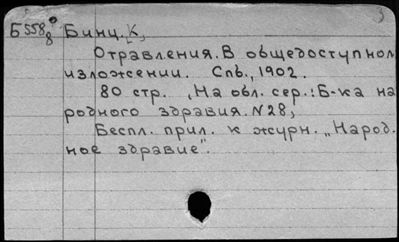 Б 558/8 Бинц. К,
Отравления. В общедоступном
изложении. Спб., 1902.
80 стр. , На обл. сер.: Б-ка на
родного здравия. N28,
Беспл. прил. к журн. „Народ.
ное здравие".